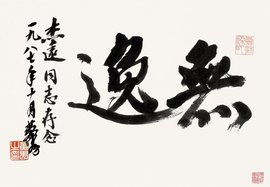 無逸
杰遠同志存念
一九八七年十月